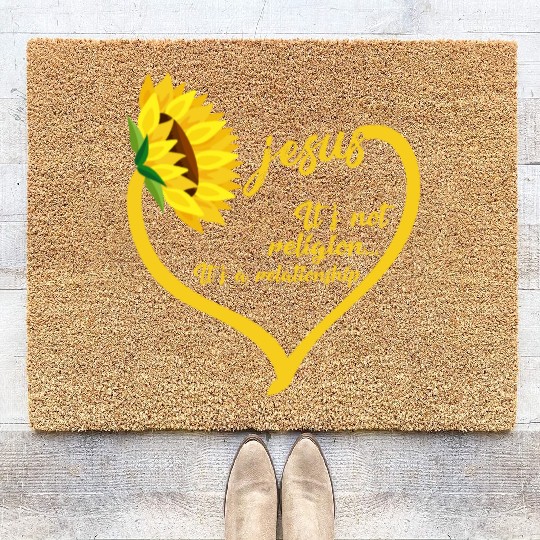 jesus
It's not
religion...
It's a relationship